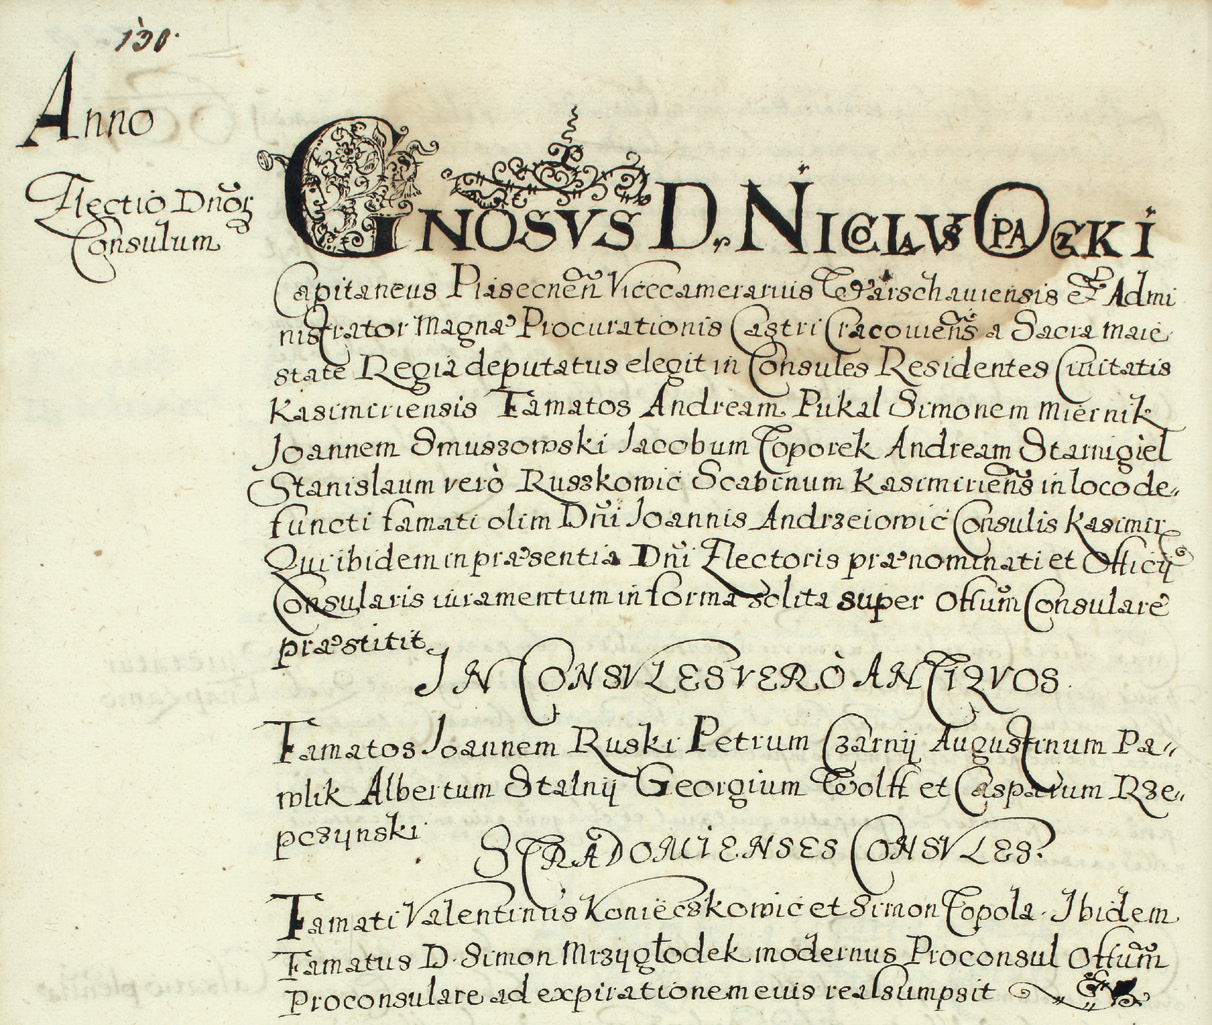 130.
Anno
Electio Dnor
Consulum
GNOSVS D. NICOLAVS OPACZKI
Capitaneus Piasecnen Vicecamerarius Warschauiensis et Admi
nistrator Magnæ Procurationis Castri Cracouiens a Sacra maie
state Regia deputatus elegit in Consules Residentes Ciuitatis
Kasimiriensis Famatos Andream Pukal Simonem Miernik
Joannem Smuszowski Jacobum Toporek Andream Starnigiel
Stanislaum verò Ruszkowic Scabinum Kasimiriens in loco de„
functi famati olim Dni Joannis Andrzeiowic Consulis Kasimir
Qui ibidem in præsentia Dni Electoris prænominati et Officij
Consularis iuramentum in forma solita super Offum Consulare
præstitit.
IN CONSVLES VERO ANTIQVOS
Famatos Joannem Ruski Petrum Czarnij Augustinum Pa„
wlik Albertum Stalnij Georgium Wolff et Casparum Rze„
pczynski
STRADOMIENSES CONSVLES.
Famati Valentinus Konieczkowic et Simon Topola. Ibidem
Famatus D. Simon Mrzygłodek modernus Proconsul Offum
Proconsulare ad expirationem eius realsumpsit